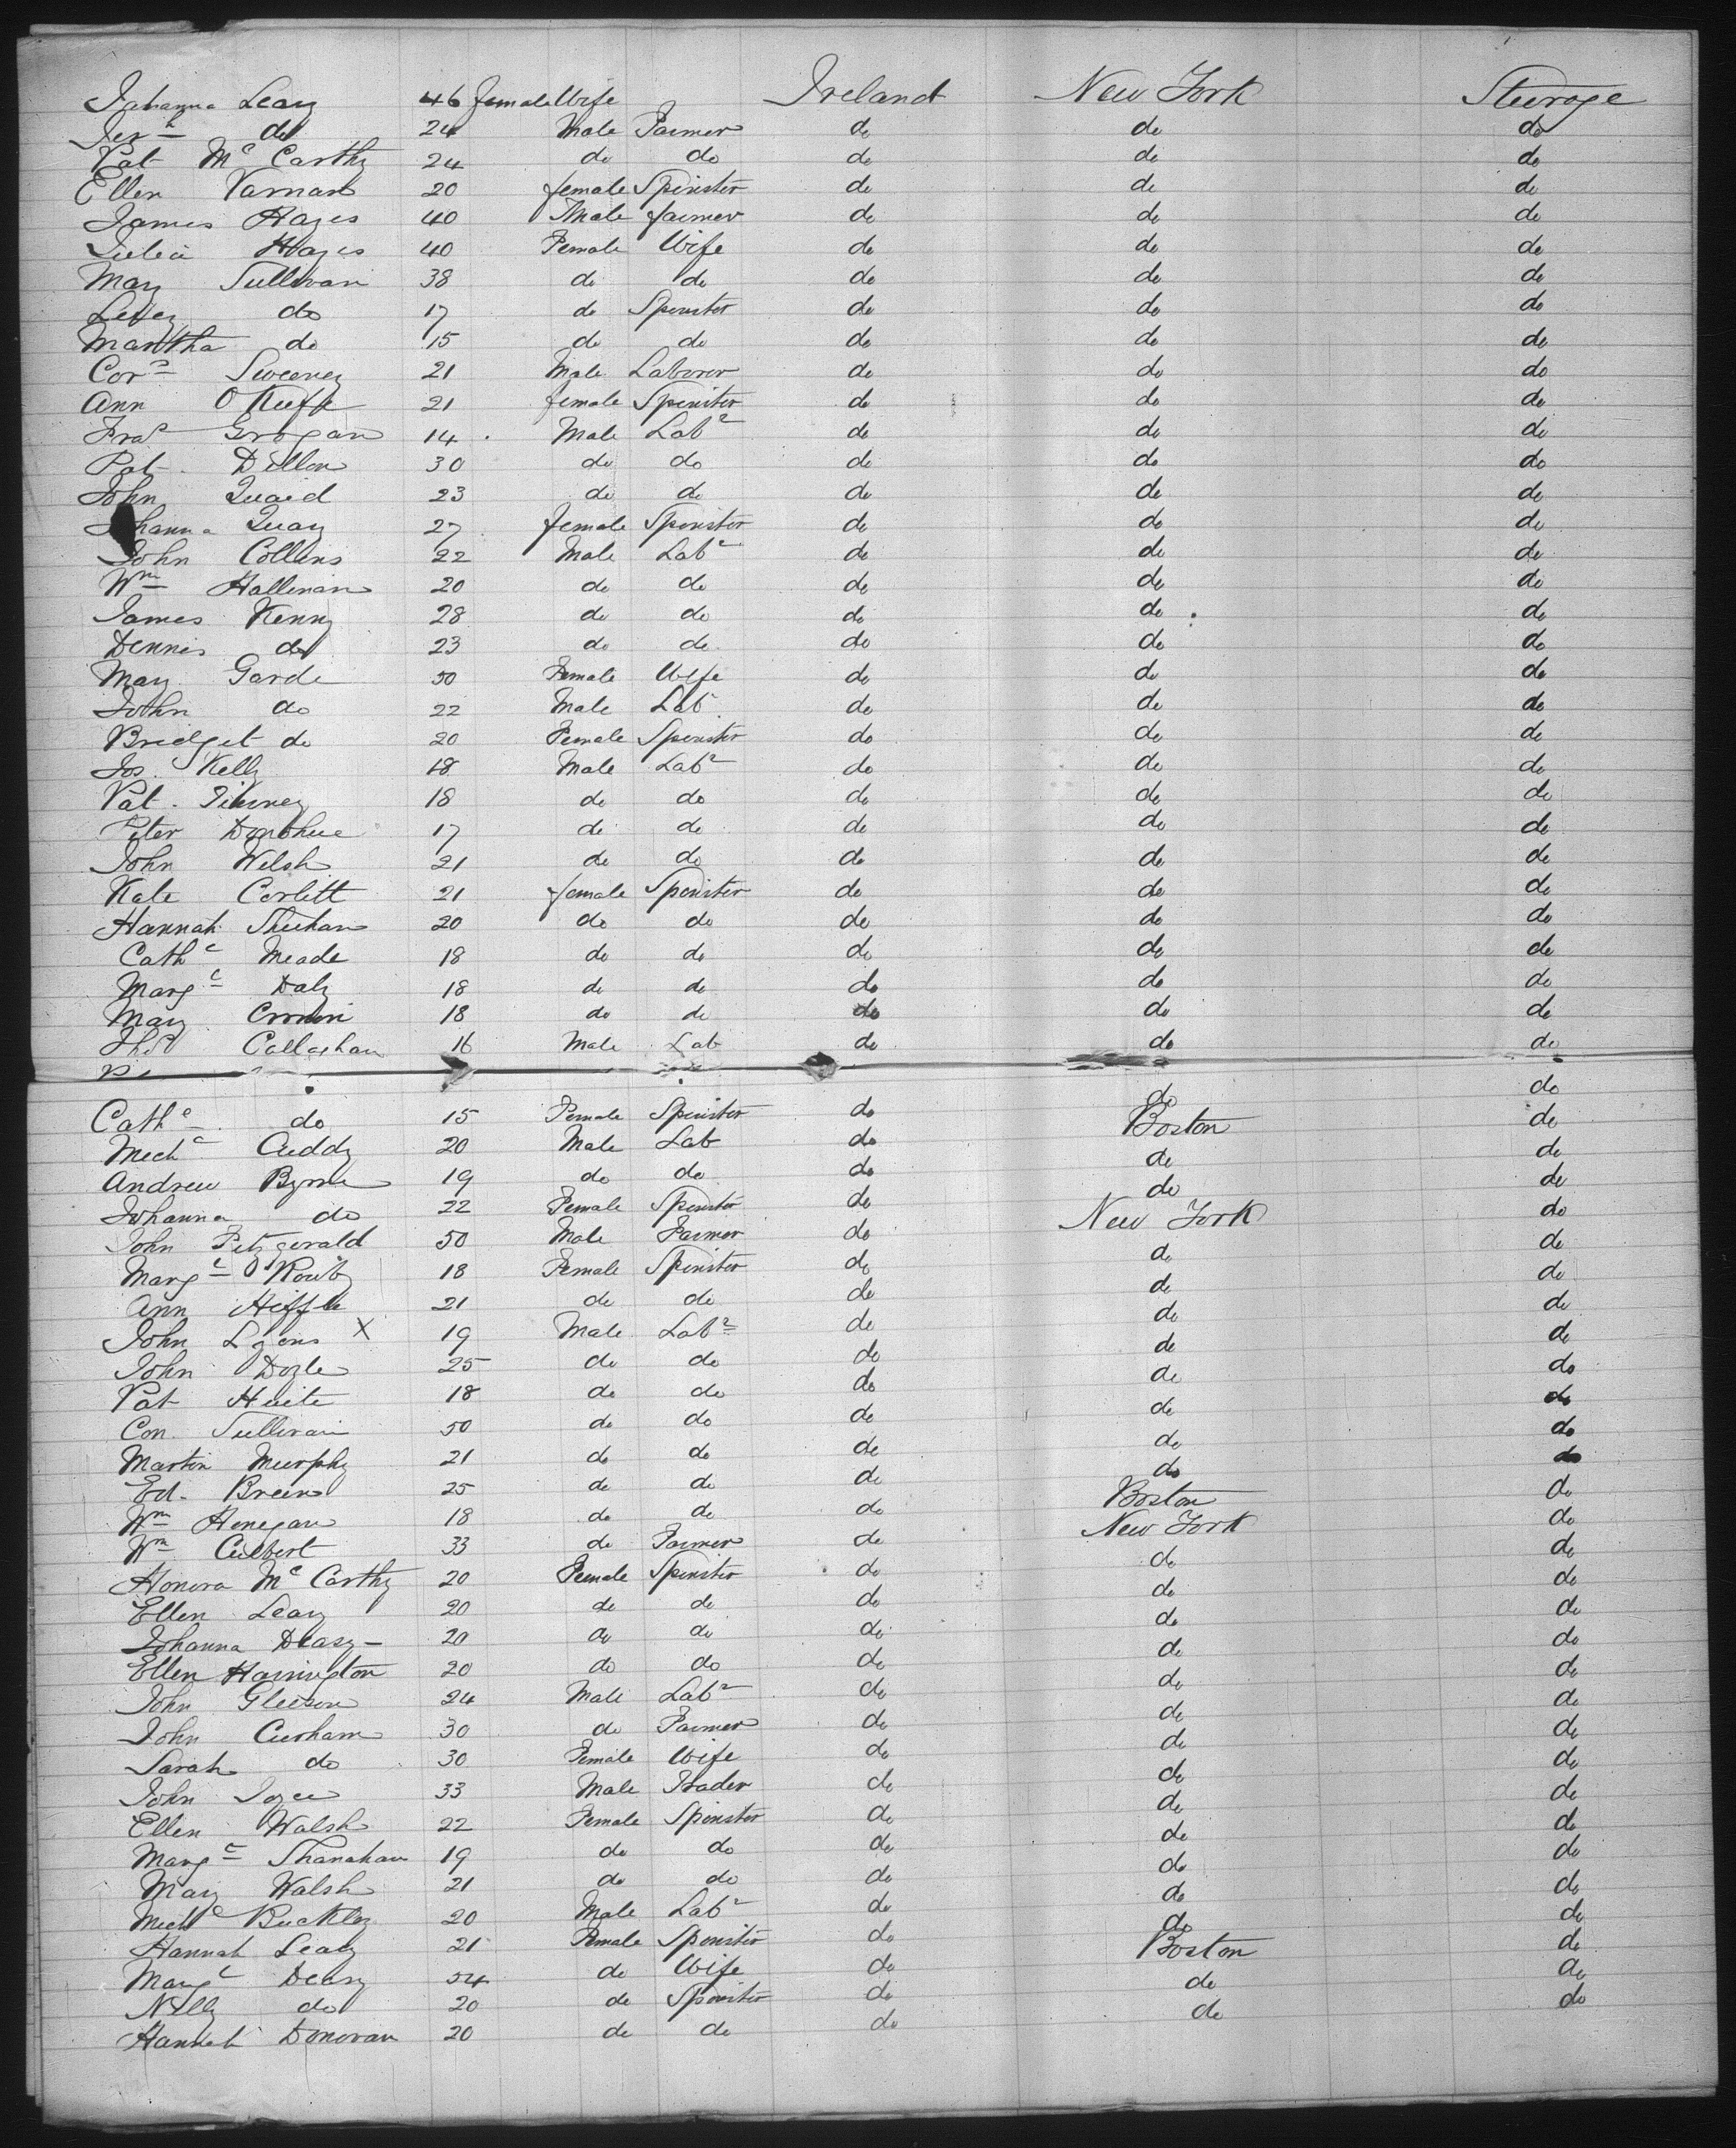 Johanna Leary 46 female Wife Ireland New York Steerage
Jerh do 24 Male Farmer do do do
Pat McCarthy 24 do do do do do
Ellen Varnan 20 female Spinster do do do
James Hayes 40 Male farmer do do do
Julia Hayes 40 Female Wife do do do
Mary Sullivan 38 do do do do do
do 17 do Spinster do do do
Martha do 15 do do do do do
Cors Sweeney 21 Male Laborer do do do
Ann O'Keeffe 21 female Spinster do do do
Fras Grogan 14 Male Labr do do do
Pat Dillon 30 do do do do do
John Quaid 23 do do do do do
Johanna Quay 27 female Spinster do do do
John Collins 22 Male Labr do do do
Wm Hallinan 20 do do do do do
James Kenny 28 do do do do do
Dennis do 23 do do do do do
Mary Garde 50 Female Wife do do do
John do 22 Male Lab do do do
Bridget do 20 Female Spinster do do do
Jos. Kelly 18 Male Labr do do do
Pat. 18 do do do do do
Peter Donohue 17 do do do do do
John Welsh 21 do do do do do
Kate Corlitt 21 female Spinster do do do
Hannah Sheehan 20 do do do do do
Cathe Meade 18 do do do do do
Margt Daly 18 do do do do do
Mary Cronin 18 do do do do do
Thos Callaghan 16 Male Lab do do do
do do
Cathe do 15 Female Spinster do Boston do
Michl Cuddy 20 Male Lab do do do
Andrew Byrne 19 do do do do do
Johanna do 22 Female Spinster do New York do
John Fitzgerald 50 Male Farmer do do do
Margt 18 Female Spinster do do do
Ann 21 do do do do do
John Lyons X 19 Male Labr do do do
John Doyle 25 do do do do do
Pat 18 do do do do do
Con. Sullivan 50 do do do do do
Martin Murphy 21 do do do do do
Ed. Breen 25 do do do Boston do
Wm Honegan 18 do do do New York do
Wm Culbert 33 do Farmer do do do
Honora McCarthy 20 Female Spinster do do do
Ellen Leary 20 do do do do do
Johanna Deasy 20 do do do do do
Ellen Harrington 20 do do do do do
John Gleeson 24 Male Labr do do do
John Curham 30 do Farmer do do do
Sarah do 30 Female Wife do do do
John Joyce 33 Male Trader do do do
Ellen Walsh 22 Female Spinster do do do
Margt Shanahan 19 do do do do do
Mary Walsh 21 do do do do do
Michl Buckley 20 Male Labr do do do
Hannah Leary 21 Female Spinster do Boston do
Margt Deasy 54 do Wife do do do
Nelly do 20 do Spinster do do do
Hannah Donovan 20 do do do